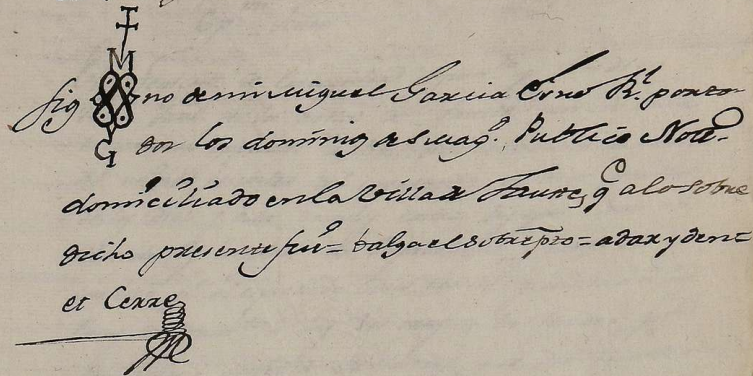 Sig no de mi Miguel Garcia Essno R.l por to-
dos los dominios de S Mag.d Publico Nott.o
domiciliado en la Villa de Fauste, q.e a lo sobre
dicho presente fui = Valga el sobre pto = a dar y den =
et Cerre